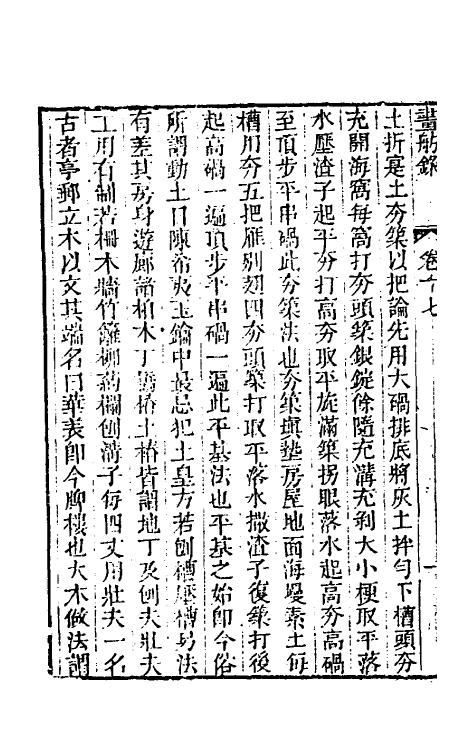 畫舫錄 卷十七
土折寔土夯築以把論先用大硪排底將灰土拌勻下槽頭夯
充開海窩每窩打夯頭築銀錠餘隨充溝充剁大小梗取平落
水壓渣子起平夯打高夯取平旋滿築拐眼落水起高夯高硪
至頂步平串硪此夯築法也夯築填墊房屋地面海墁素土每
槽用夯五把雁別翅四夯頭築打取平落水撒渣子復築打後
起高硪一遍頂步平串硪一遍此平基法也平基之始即今俗
所謂動土日陳希夷玉鑰中最忌犯土皇方若刨槽壓槽另法
有差其房身遊廊諸柏木丁橋樁土樁皆謂地丁及刨夫壯夫
工用有制若柵木牆竹籬柳葯欄刨溝子每四丈用壯夫一名
古者亭郵立木以文其端名曰華表即今牌樓也大木做法謂